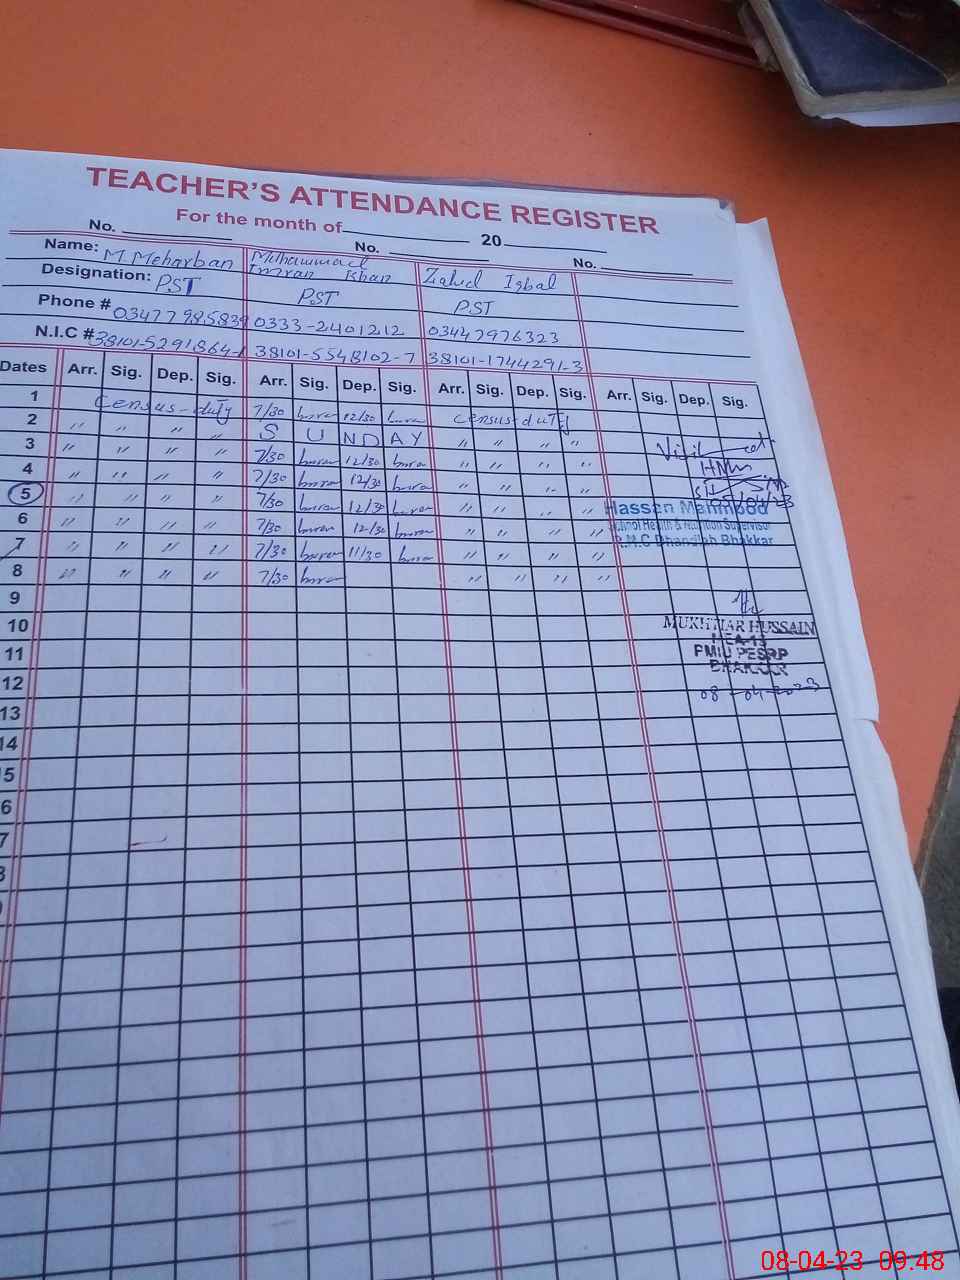 TEACHER'S ATTENDANCE REGISTER
For the month of 20
No. No. No.
Name: M. Meharban Muhammad Imran Khan Zahid Iqbal
Designation: PST PST PST
Phone # 03477985839 0333-2401212 03447976323
N.I.C # 38101-5291864-1 38101-5548102-7 38101-1744291-3
Dates Arr. Sig. Dep. Sig. Arr. Sig. Dep. Sig. Arr. Sig. Dep. Sig. Arr. Sig. Dep. Sig.
1 Census-duty 7/30 12/30 Census-duty
2 " " " " S U N D A Y " " " "
3 " " " " 7/30 12/30 " " " "
4 " " " " 7/30 12/30 " " " "
5 " " " " 7/30 12/30 " " " "
6 " " " " 7/30 12/30 " " " "
7 " " " " 7/30 11/30 " " " "
8 " " " " 7/30 " " " "
Visited
Hassan Mehmood
School Health & Nutrition Supervisor
Bhakkar
9
10
MUKHTIAR HUSSAIN
11
PMIU PESRP
BHAKKAR
12
08-04-2023
13
14
15
16
17
08-04-23 09.48